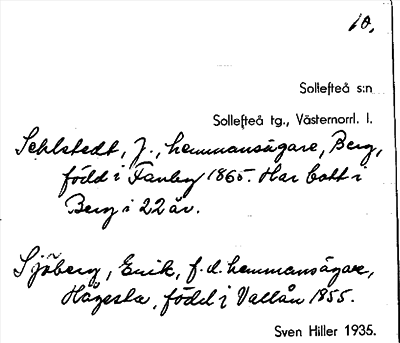 10.
Sollefteå s:n
Sollefteå tg., Västernorrl. l.
Sehlstedt, J., hemmansägare, Berg,
född i Tanby 1865. Har bott i
Berg i 22 år.
Sjöberg, Erik, f.d. hemmansägare,
Hågesta, född i Vallån 1855.
Sven Hiller 1935.